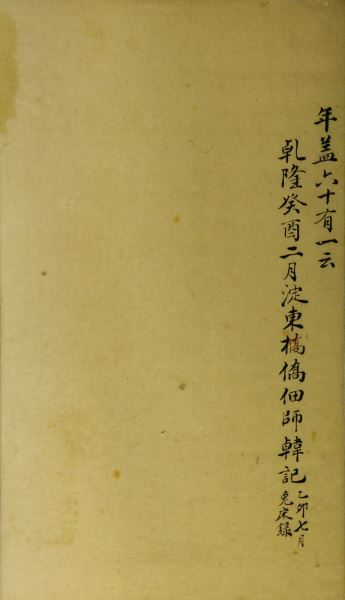 年蓋六十有一云
乾隆癸酉二月淀東橋僑佃師韓記
乙卯七月
兎床録